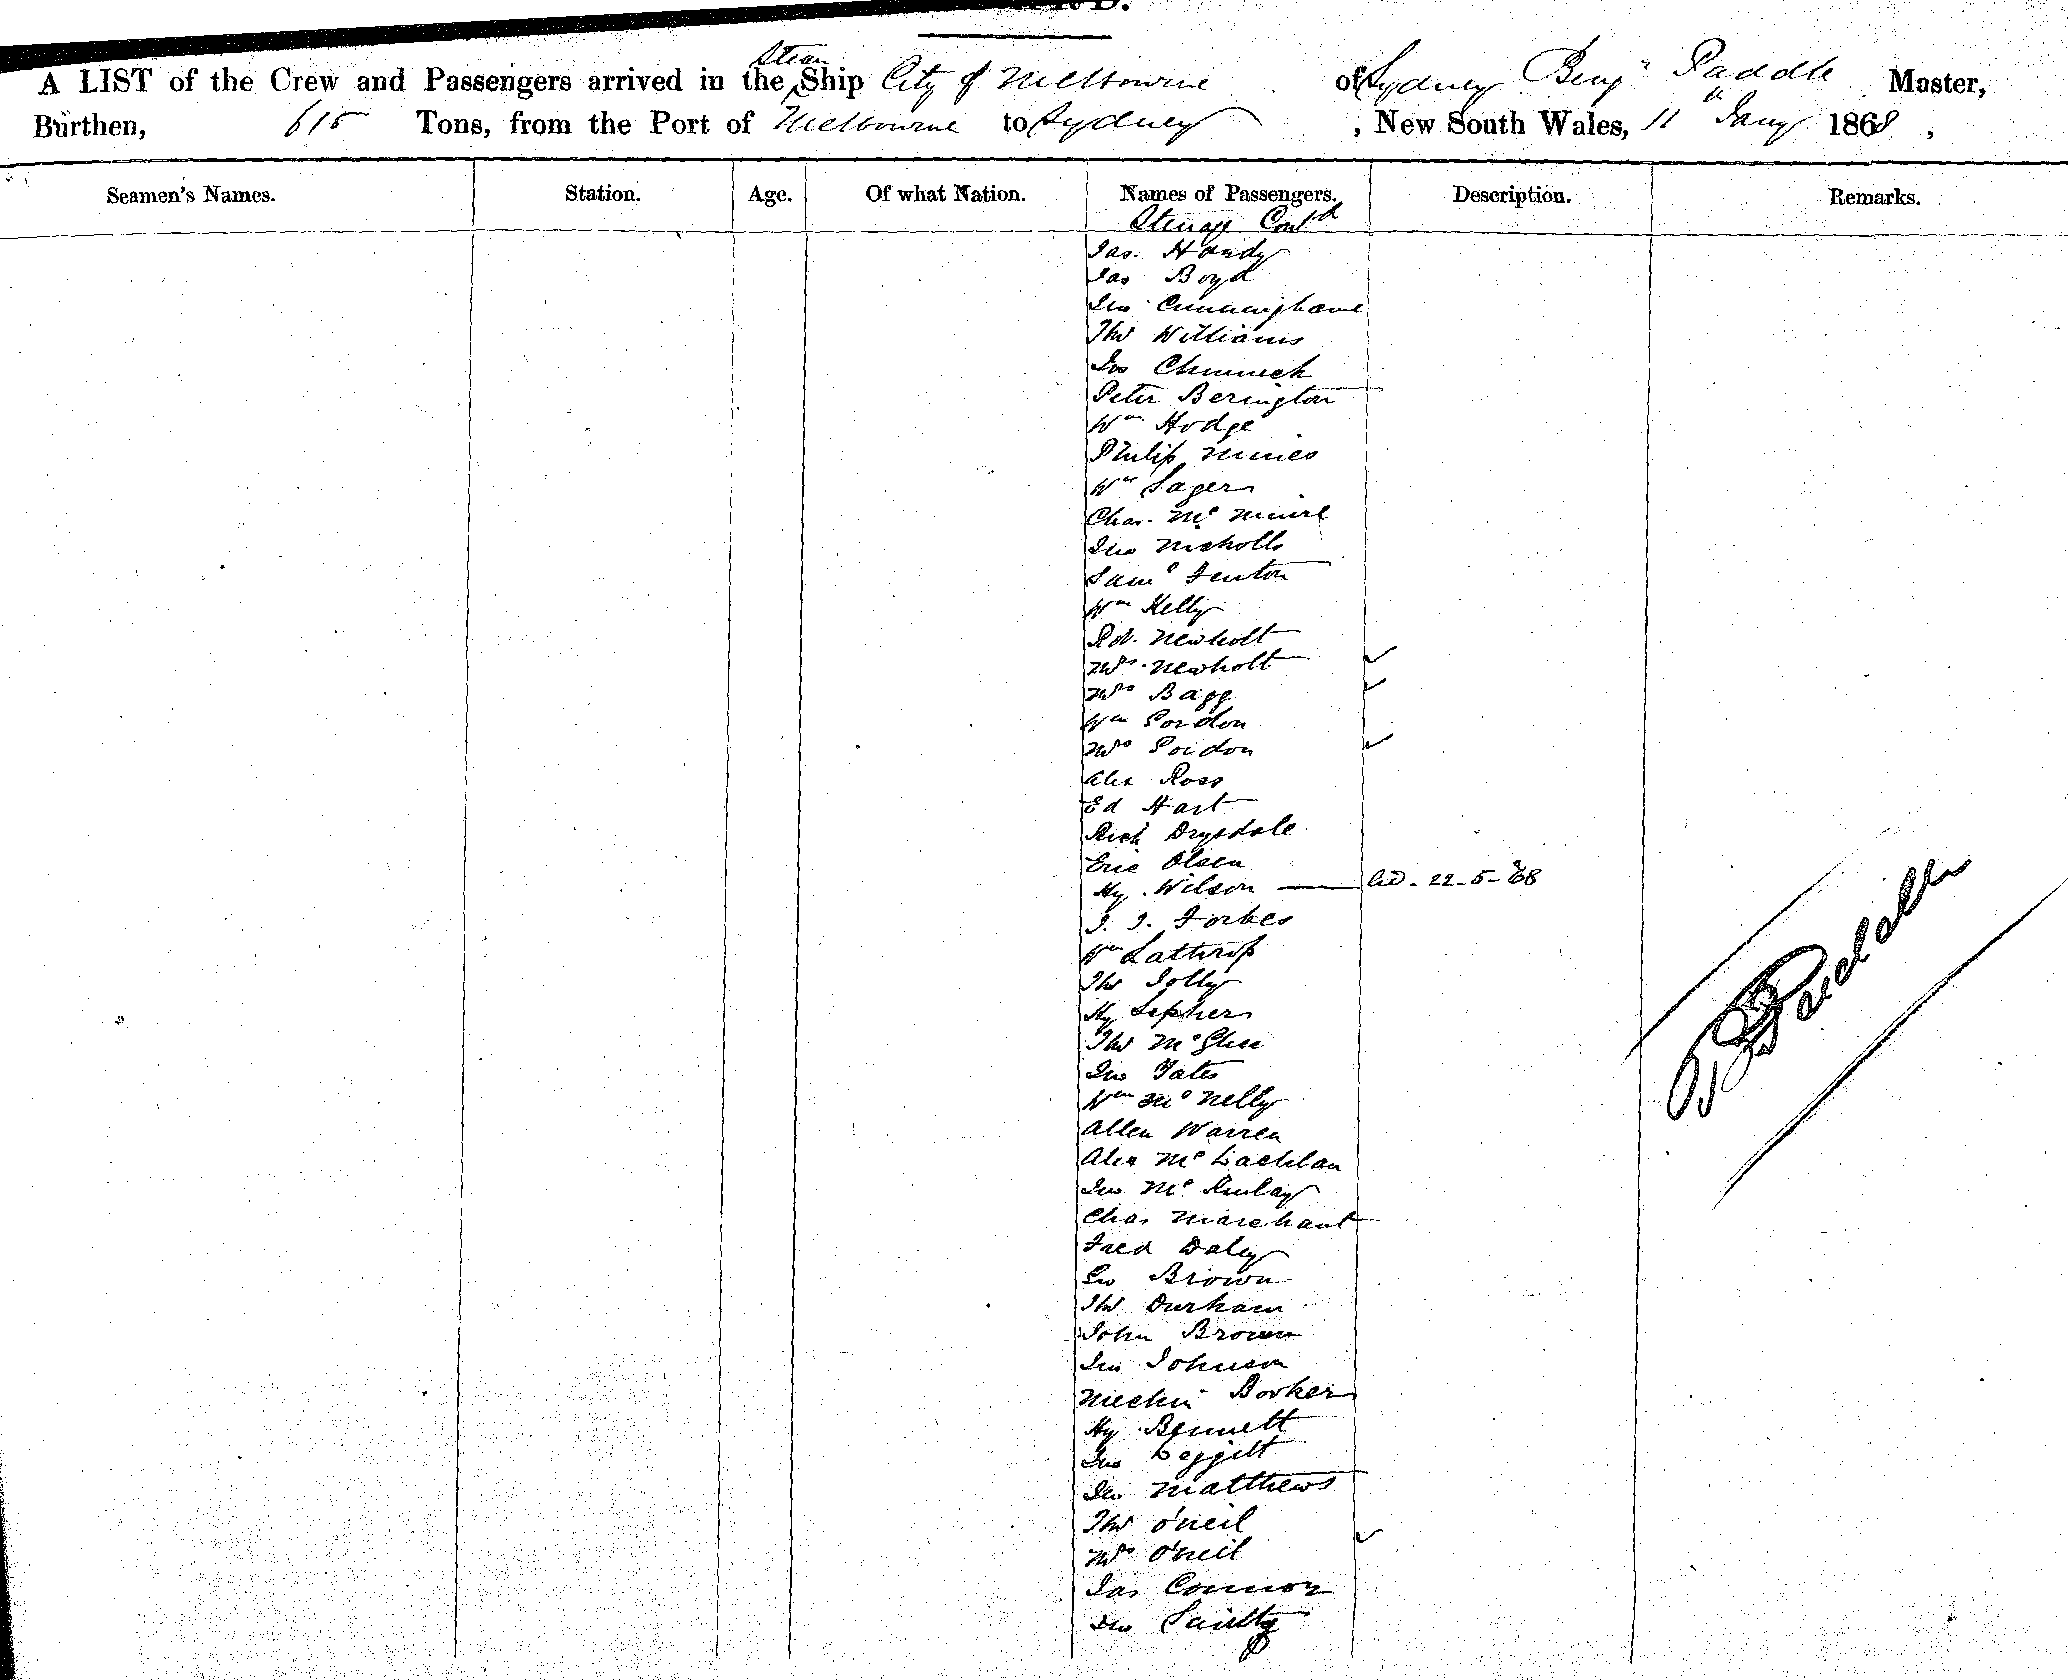 Steam
A LIST of the Crew and Passengers arrived in the Ship City of Melbourne of Sydney Benjn Paddle Master,
Burthen, 615 Tons, from the Port of Melbourne to Sydney, New South Wales, 11th Jany 1868,
Seamen's Names. Station. Age. Of what Nation. Names of Passengers. Description. Remarks.
Steerage Contd
Jas. Handy
Jas Boyd
Jno Cunninghame
Thos Williams
Jos
Peter Berington
Wm Hodge
Philip
Wm Sagers
Chas. Mc
Jno Nicholls
Saml Fenton
Wm Kelly
Rd. Newholt
Mrs. Newholt
Mrs Bagg
Wm Pordon
Mrs Pordon
Alex Ross
Ed Hart
Rich Drysdale
Eric Olsen
Hy. Wilson — 22-5-68
J. J. Forbes
Wm Lathrop
Thos Jolly
Hy
Thos
Jno Yates
Wm McNelly
Allen Warren
Alex McLachlan
Jno Mc
Chas Marchant
Fred Daley
Geo Brown
Thos Durham
John Brown
Jno Johnson
Booker
Hy Bennett
Jno Leggett
Jno Matthews
Thos O'Neil
Mrs O'Neil
Jas Connor
Jno
B Paddle